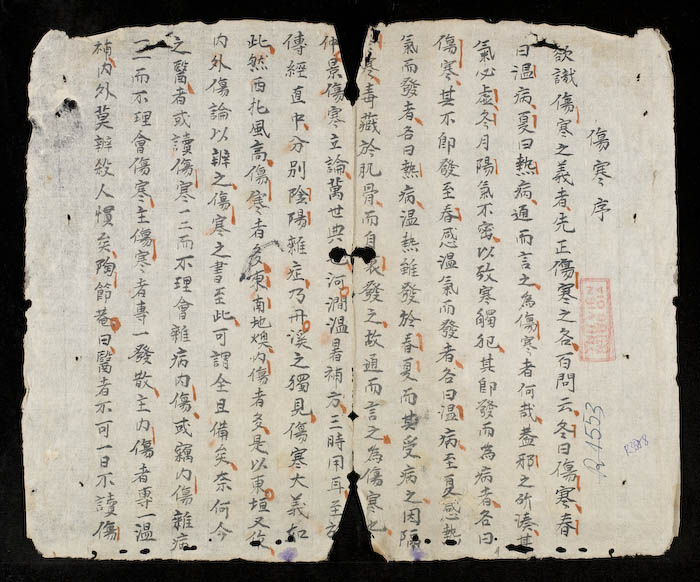 傷寒序
欲識傷寒之義者先正傷寒之名百問云冬曰傷寒春
曰溫病夏曰熱病通而言之為傷寒者何哉蓋邪之所湊其
氣必虛冬月陽氣不密以致寒觸犯其即發而為病者名曰
傷寒其不即發至春感溫氣而發者名曰溫病至夏感熱
氣而發者名曰熱病溫熱雖發於春夏而其受病之因隔
寒毒藏於肌骨而自裏發之故通而言之為傷寒也
仲景傷寒立論萬世典 河澗溫暑補方三時用耳至於
傳經直中分別陰陽雜症乃丹溪之獨見傷寒大義如
此然西北風高傷寒者多東南地煖內傷者多是以東垣又作
內外傷論以辨之傷寒之書至此可謂全且備矣奈何今
之醫者或讀傷寒一二而不理會雜病內傷或竊內傷雜病
一二而不理會傷寒主傷寒者專一發散主內傷者專一溫
補內外莫辨殺人慣矣陶節菴曰醫者不可一日不讀傷
R 1553
R.528